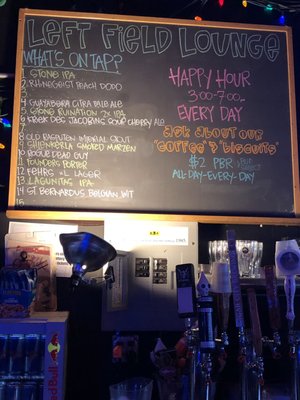 LEFT FIELD LOUNGE
WHAT'S ON TAP?
1 STONE IPA
2 RHINEGEIST BEACH DODO
3
4 GUAYABERA CITRA PALE ALE
5 STONE RUINATION 2X IPA
6 FREAK DES TACOBANG SOUR CHERRY ALE
7
8 OLD RASPUTIN IMPERIAL STOUT
9 SHLENKERLA SMOKED MARZEN
10 ROGUE DEAD GUY
11 FOUNDERS PORTER
12 FEHRS XL LAGER
13 LAGUNITAS IPA
14 ST. BERNARDUS BELGIAN WIT
15
HAPPY HOUR
3:00-7:00
EVERY DAY
ASK ABOUT OUR
"COFFEE" & "BISCUITS"
$2 PBR
ALL-DAY-EVERY-DAY